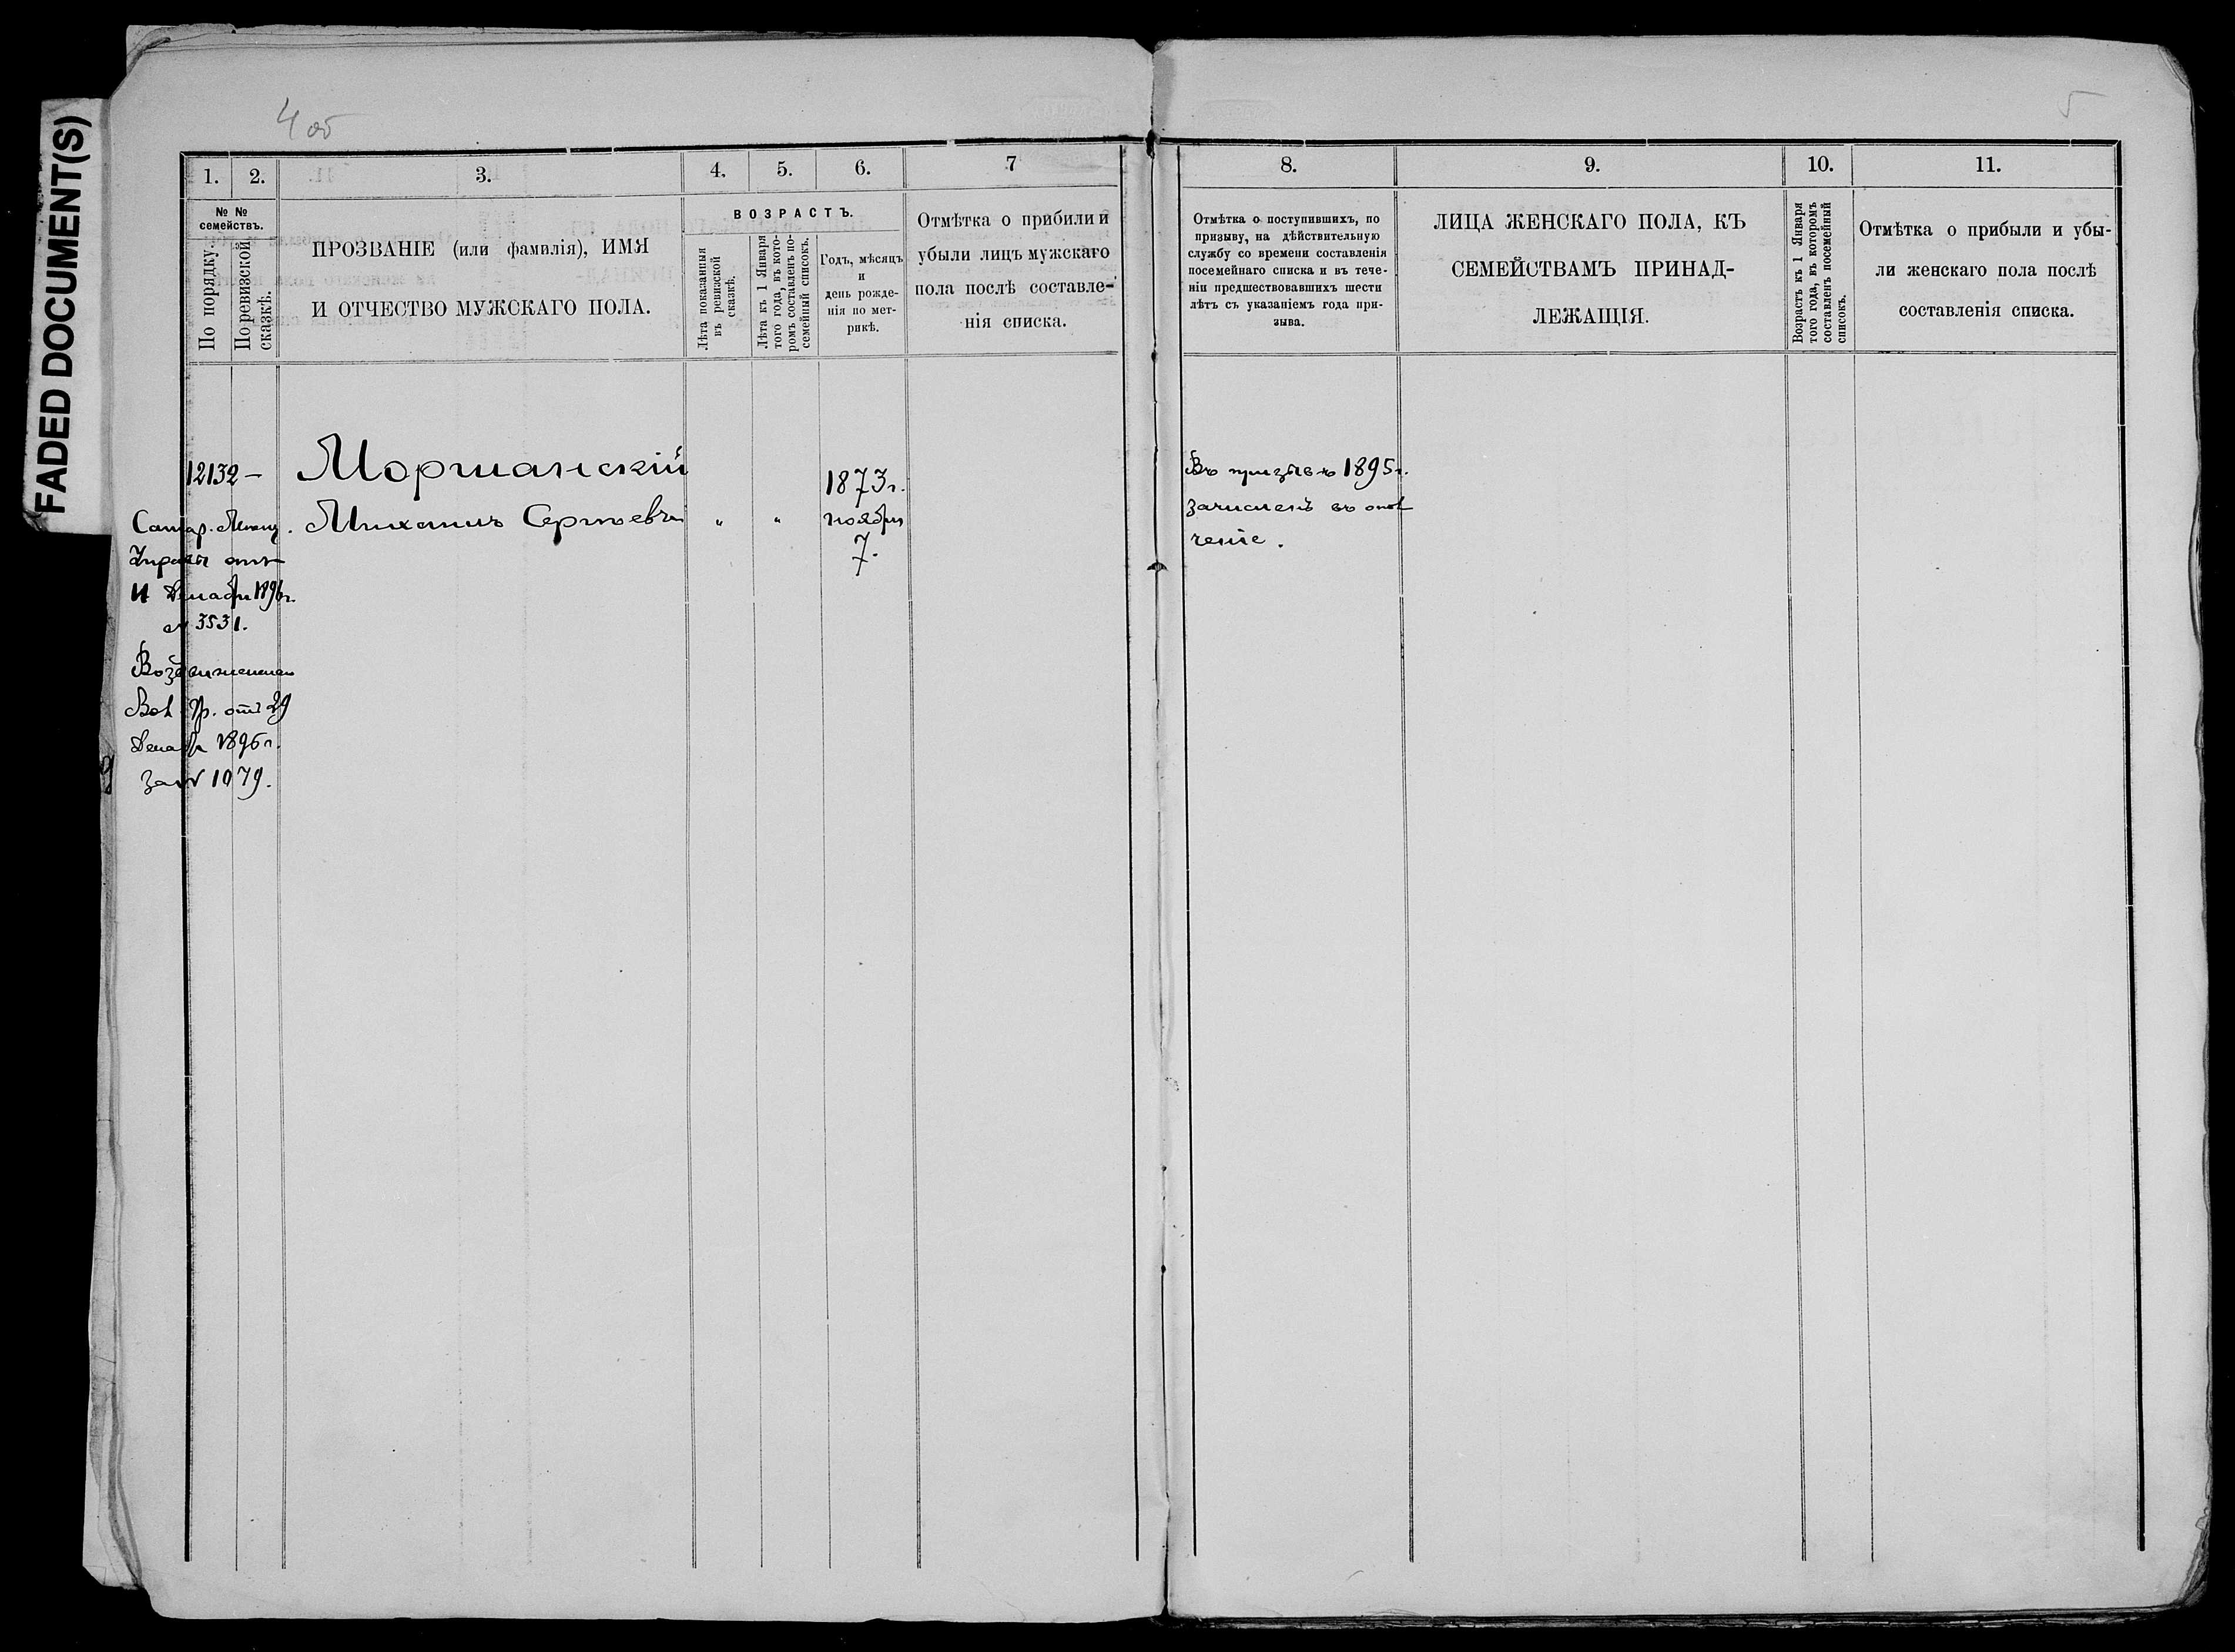 FADED DOCUMENT(S)
4 об
5
1.
2.
3.
4.
5.
6.
7
8.
9.
10.
11.
№ №
семействъ.
По порядку.
По ревизской
сказкѣ.
ПРОЗВАНІЕ (или фамилія), ИМЯ
И ОТЧЕСТВО МУЖСКАГО ПОЛА.
ВОЗРАСТЪ.
Лѣта показанныя
въ ревизской
сказкѣ.
Лѣта къ 1 Января
того года, въ кото-
ромъ составленъ по-
семейный списокъ.
Годъ, мѣсяцъ
и
день рожде-
нія по мет-
рикѣ.
Отмѣтка о прибили и
убыли лицъ мужскаго
пола послѣ составле-
нія списка.
Отмѣтка о поступившихъ, по
призыву, на дѣйствительную
службу со времени составленія
посемейнаго списка и въ тече-
ніи предшествовавшихъ шести
лѣтъ съ указаніемъ года при-
зыва.
ЛИЦА ЖЕНСКАГО ПОЛА, КЪ
СЕМЕЙСТВАМЪ ПРИНАД-
ЛЕЖАЩІЯ.
Возрастъ къ 1 Января
того года, въ которомъ
составленъ посемейный
списокъ.
Отмѣтка о прибыли и убы-
ли женскаго пола послѣ
составленія списка.
12132 —
Моршанскій
Михаилъ Сергѣевъ
" "
1873 г.
ноября
7.
Въ призывъ 1895 г.
зачисленъ въ опол
ченіе.
Самар. Мѣщ.
Управы отъ
Декабря 1896 г.
№ 3531.
Воздвиженск
Вол. Пр. отъ 29
Декабря 1896 г.
за № 1079.